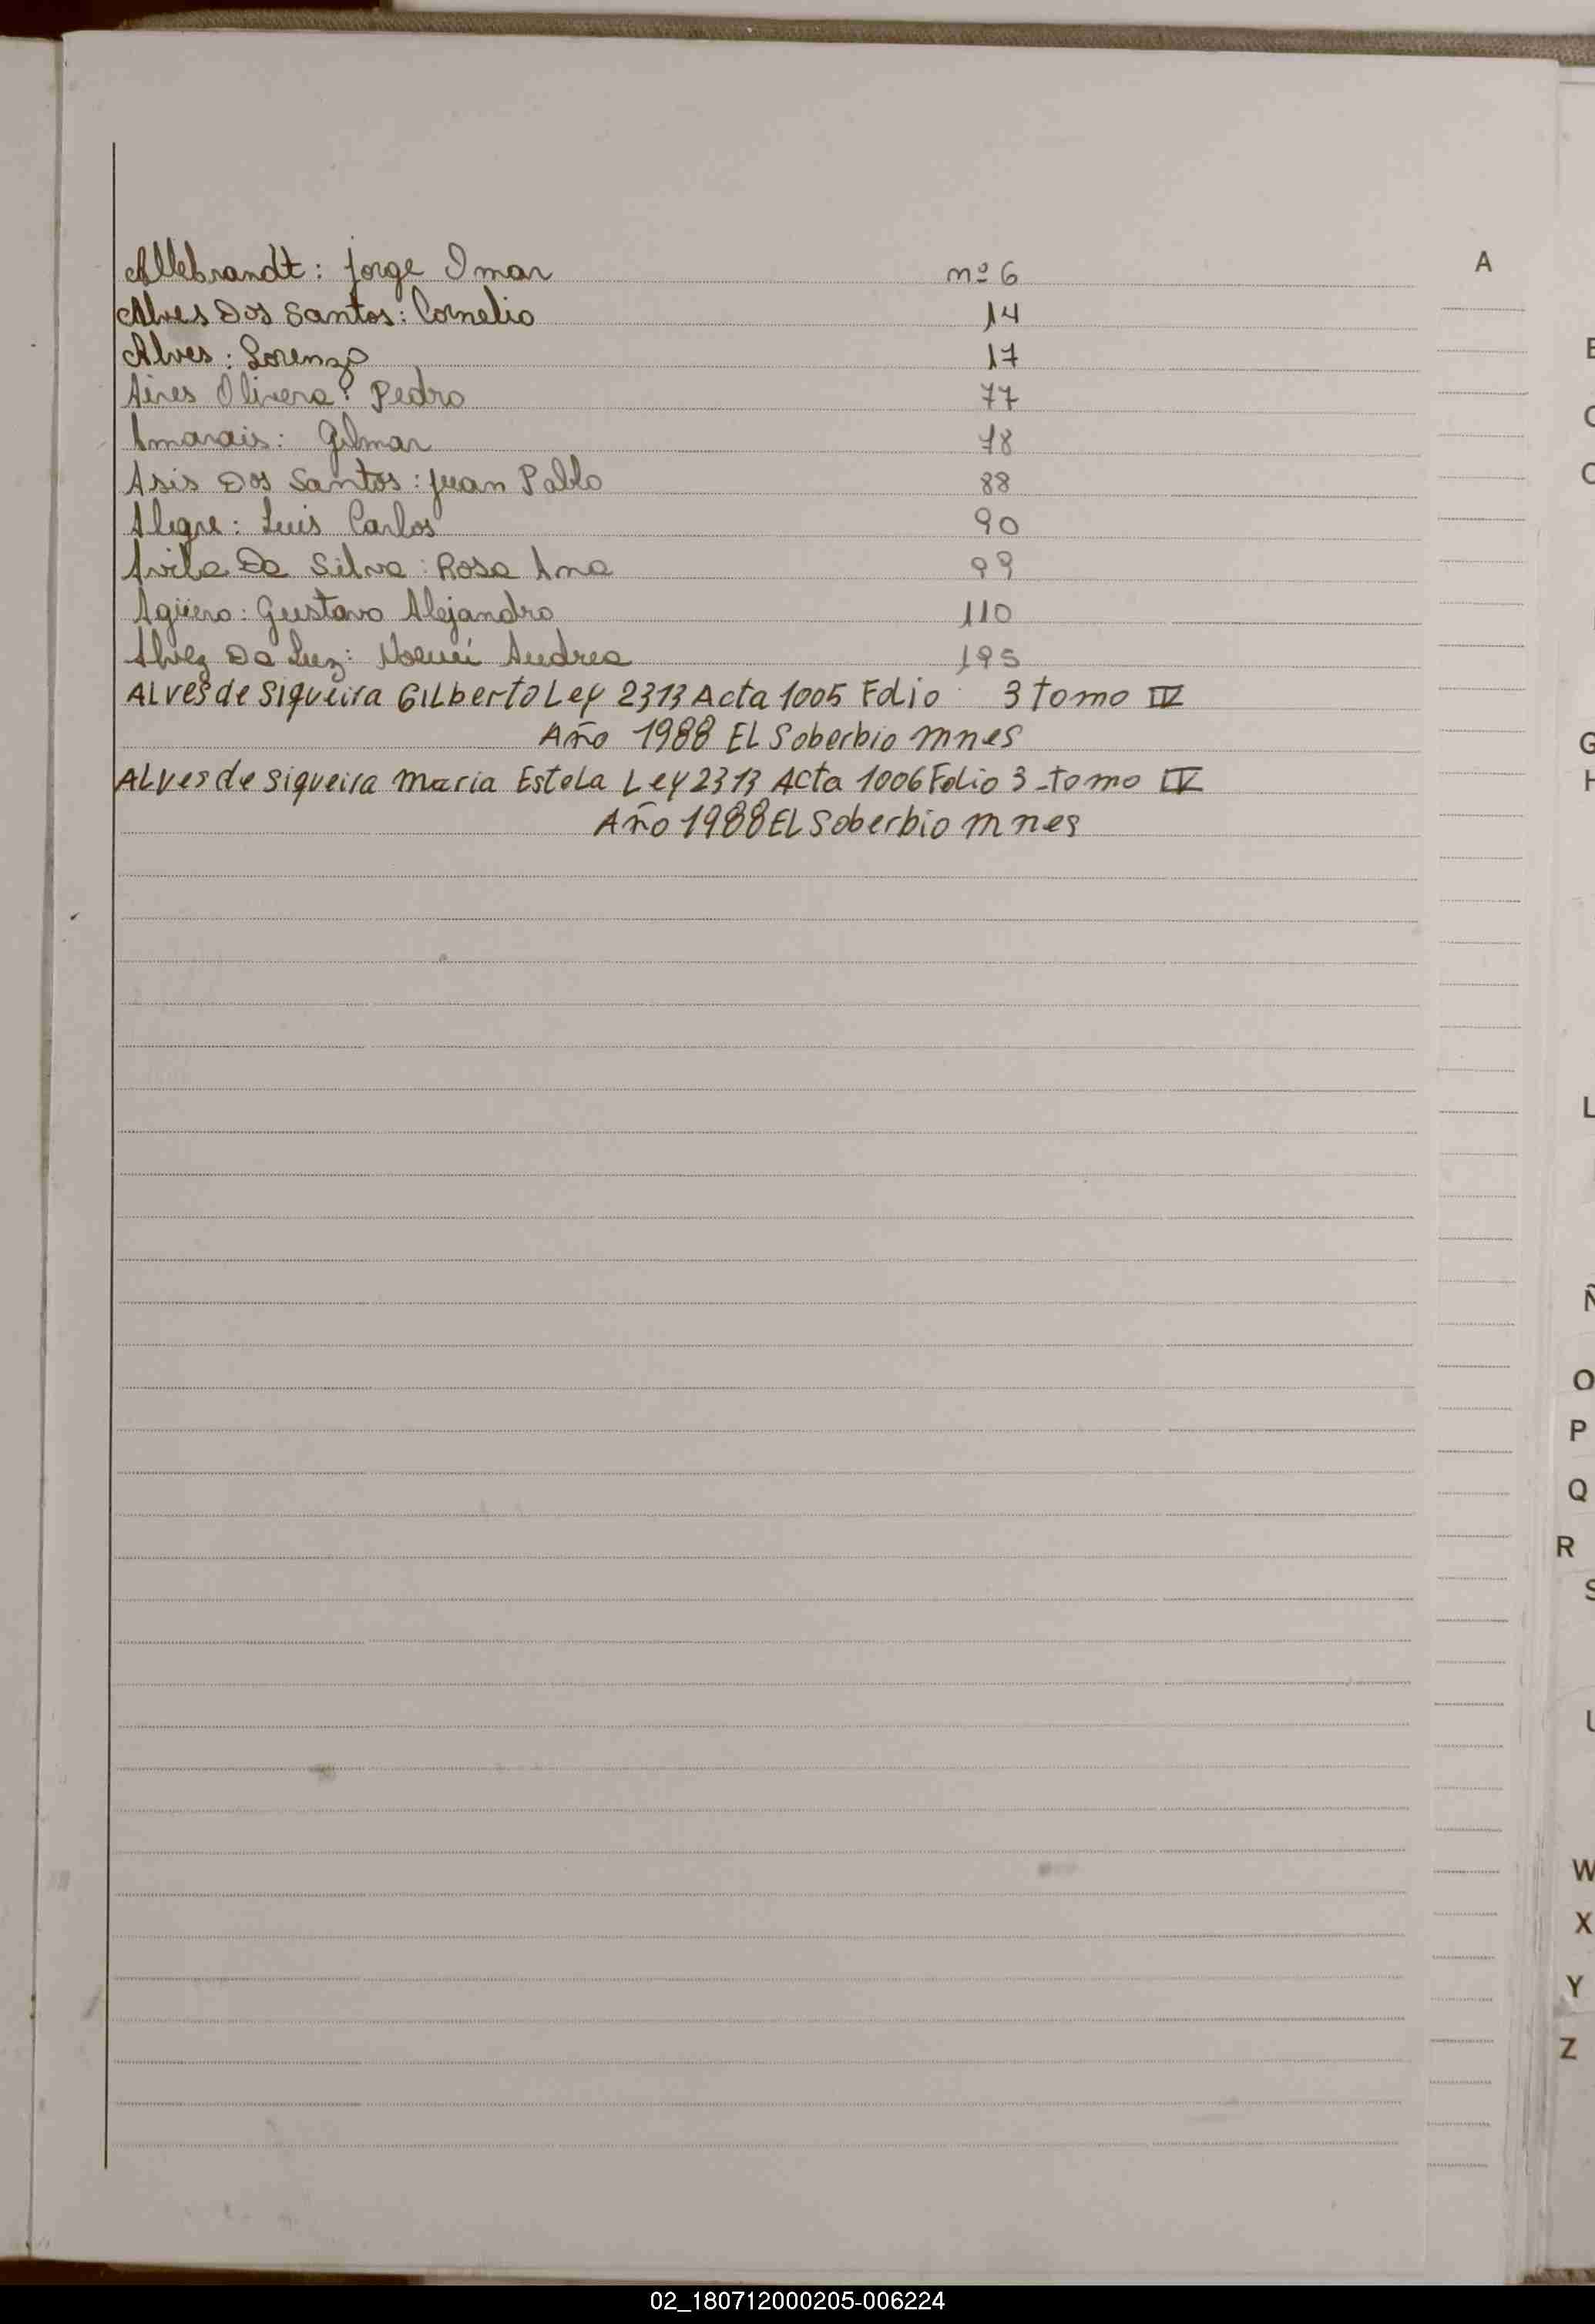 Allebrandt: Jorge Omar nº 6
Alves Dos Santos: Cornelio 14
Alves: Lorenzo 17
Aires Olivera: Pedro 77
Amarais: Gilmar 78
Asis Dos Santos: Juan Pablo 88
Alegre: Luis Carlos 90
Avila Da Silva: Rosa Ana 99
Agüero: Gustavo Alejandro 110
Alvez Da Luz: Noemí Andrea 195
ALves de Siqueira GILberto Ley 2313 Acta 1005 Folio 3 tomo IV
Año 1988 EL Soberbio mnes
ALves de Siqueira Maria Estela Ley 2313 Acta 1006 Folio 3 - tomo IV
Año 1988 EL Soberbio mnes
A
E
C
G
H
L
Ñ
O
P
Q
R
S
U
W
X
Y
Z
02_180712000205-006224